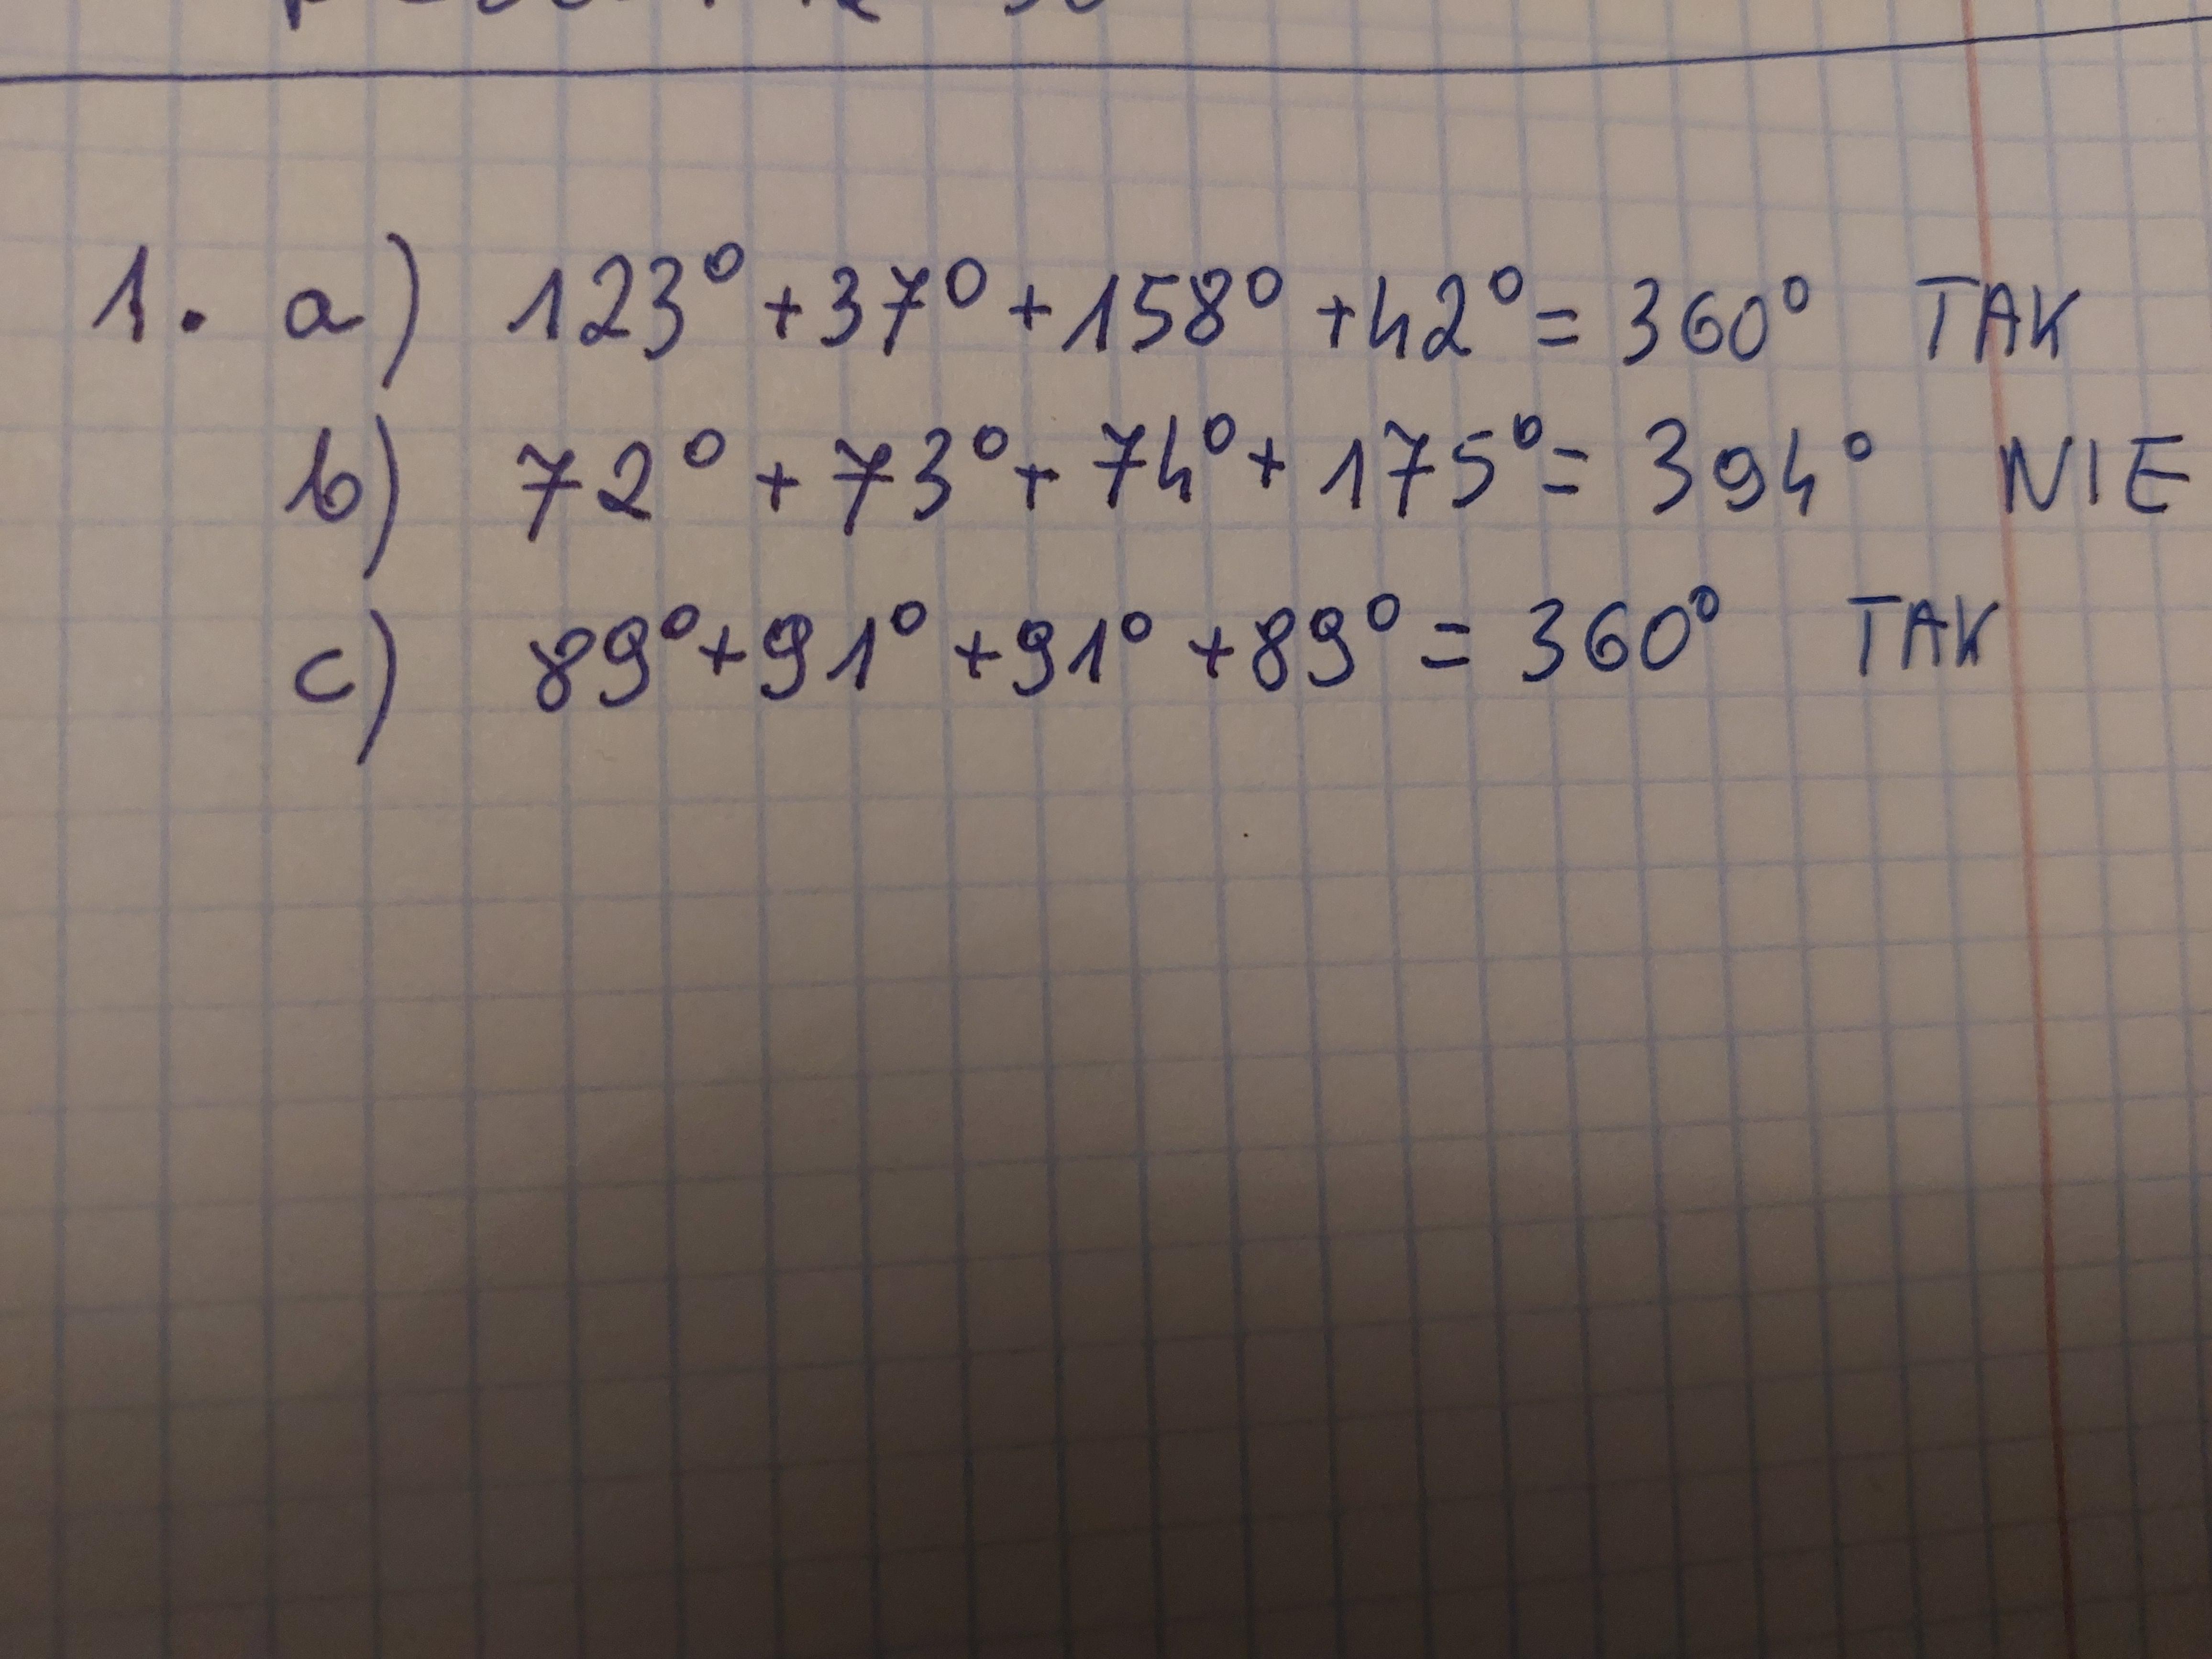 1. a) 123° + 37° + 158° + 42° = 360° TAK
b) 72° + 73° + 74° + 175° = 394° NIE
c) 89° + 91° + 91° + 89° = 360° TAK